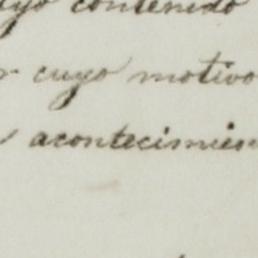 cuyo contenido
r cuyo motivo
acontecimien